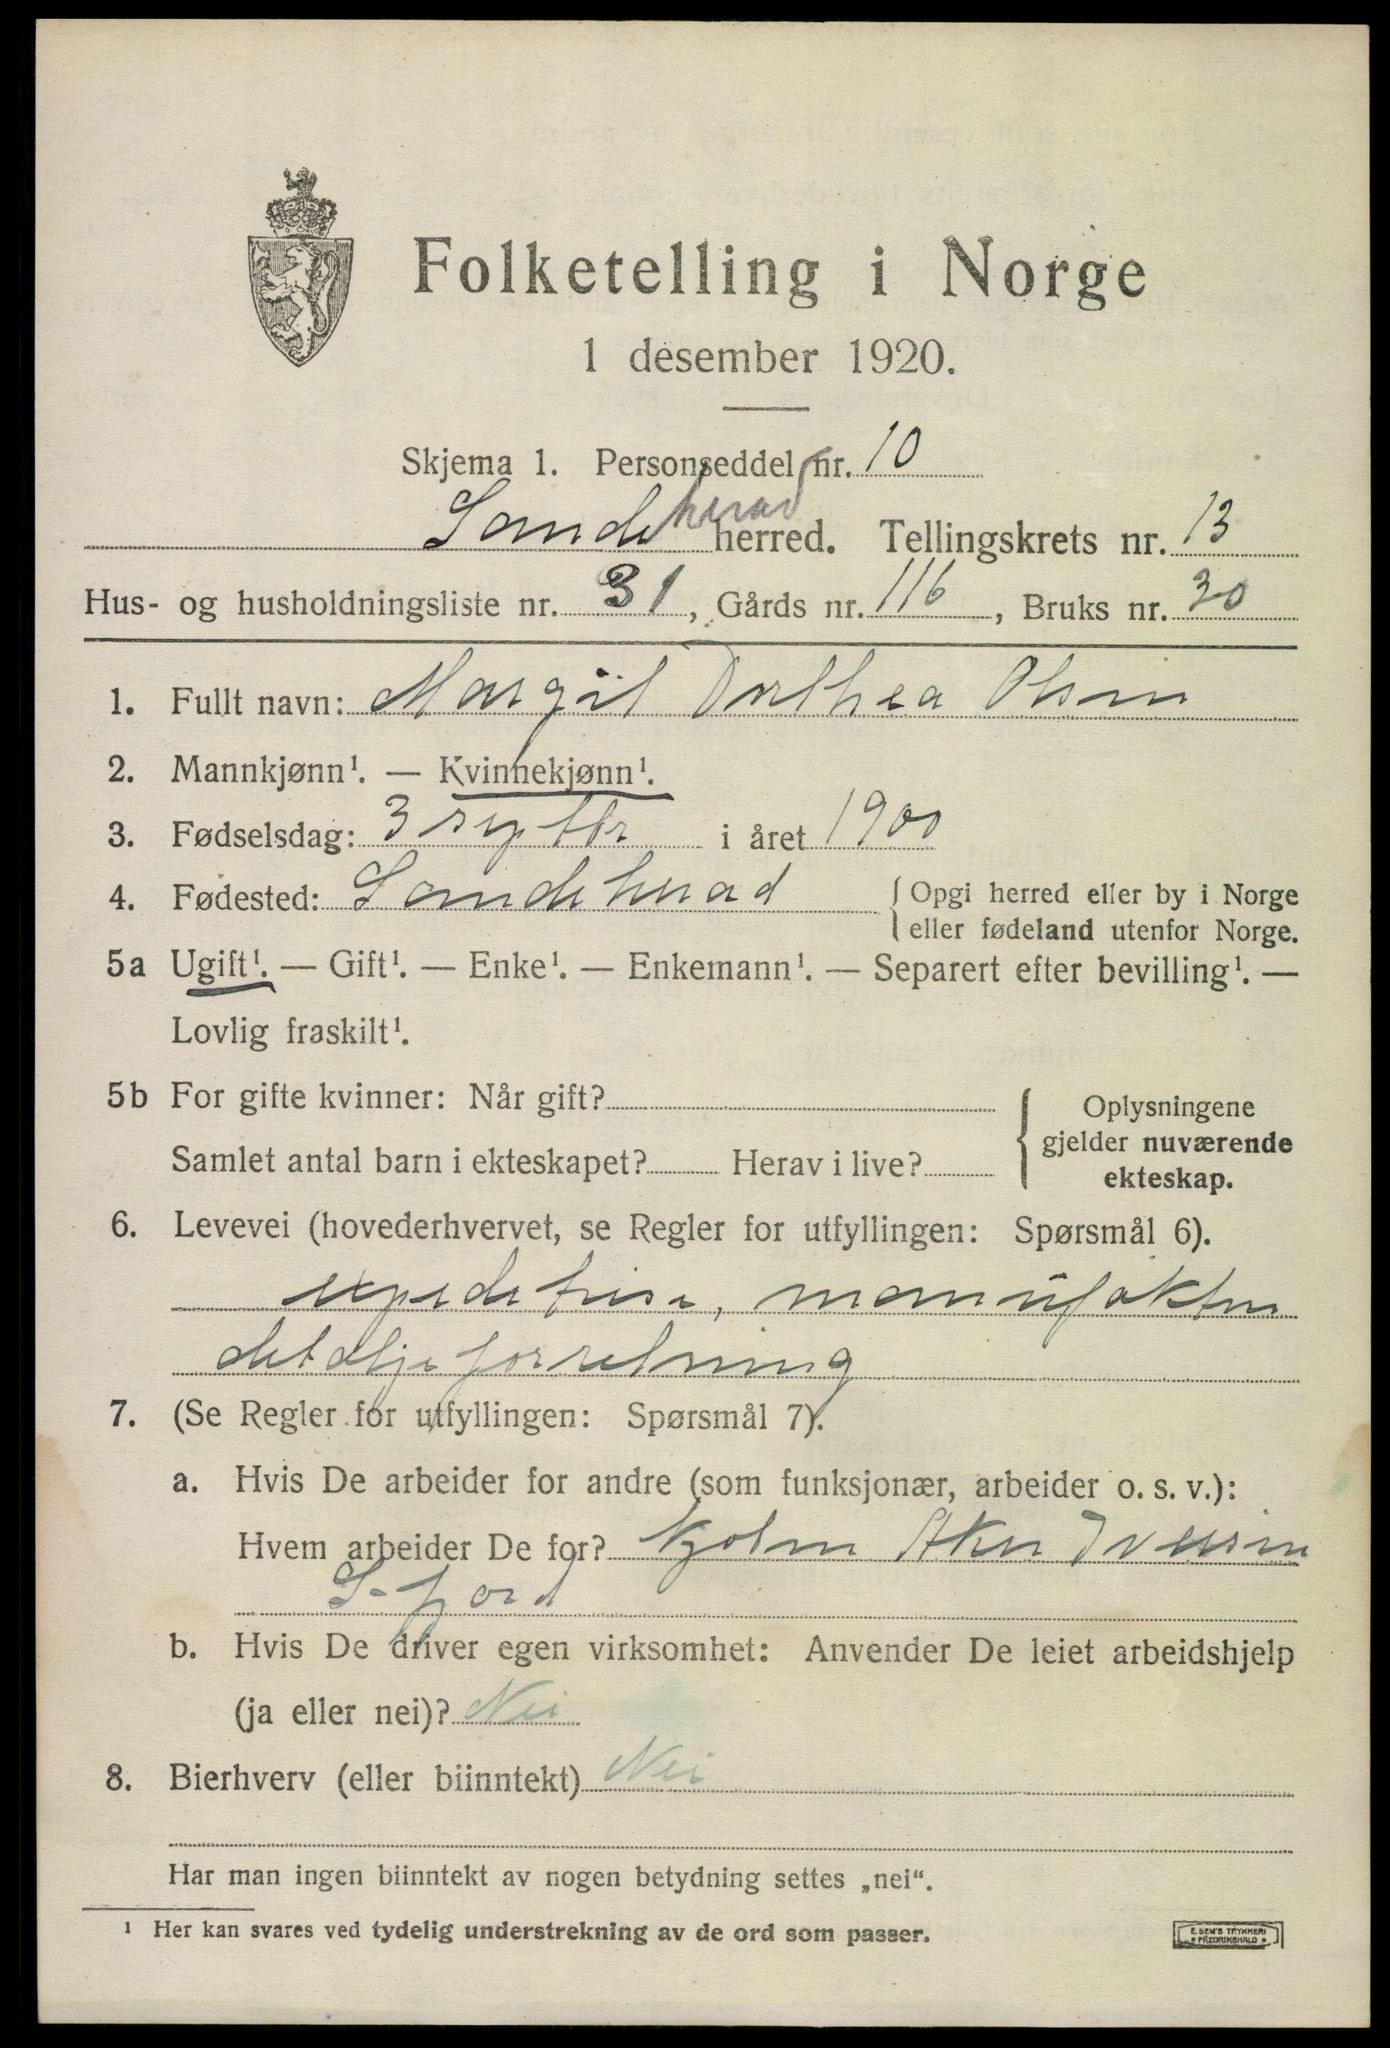 Folketelling i Norge
1 desember 1920.
Skjema 1. Personseddel nr. 10
Sandeherad herred. Tellingskrets nr. 13
Hus- og husholdningsliste nr. 31, Gårds nr. 116, Bruks nr. 30
1. Fullt navn: Margit Dorthea Olsen
2. Mannkjønn¹. — Kvinnekjønn¹.
3. Fødselsdag: 3 septbr i året 1900
4. Fødested: Sandeherad { Opgi herred eller by i Norge
eller fødeland utenfor Norge.
5a Ugift¹. — Gift¹. — Enke¹. — Enkemann¹. — Separert efter bevilling¹. —
Lovlig fraskilt¹.
5b For gifte kvinner: Når gift?
Samlet antal barn i ekteskapet? Herav i live?
{ Oplysningene
gjelder nuværende
ekteskap.
6. Levevei (hovederhvervet, se Regler for utfyllingen: Spørsmål 6).
expedetrise, manufaktur
detaljeforretning
7. (Se Regler for utfyllingen: Spørsmål 7).
a. Hvis De arbeider for andre (som funksjonær, arbeider o. s. v.):
Hvem arbeider De for? Iversen
S-fjord
b. Hvis De driver egen virksomhet: Anvender De leiet arbeidshjelp
(ja eller nei)? Nei
8. Bierhverv (eller biinntekt) Nei
Har man ingen biinntekt av nogen betydning settes „nei“.
¹ Her kan svares ved tydelig understrekning av de ord som passer.
E. SEM'S TRYKKERI
FREDRIKSHALD